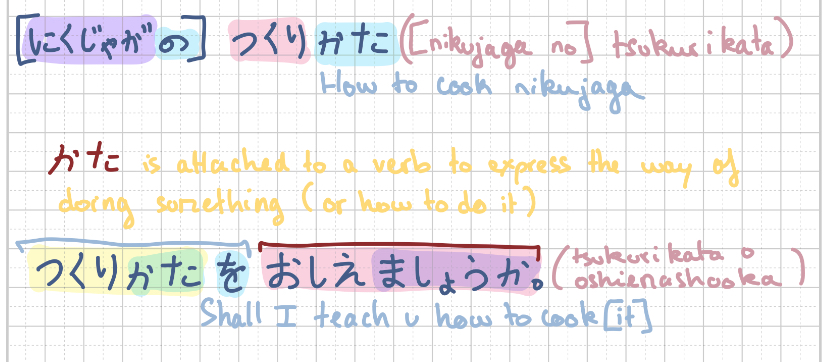 [にくじゃがの] つくりかた ([nikujaga no] tsukurikata)
How to cook nikujaga
かた is attached to a verb to express the way of
doing something (or how to do it)
つくりかたを おしえましょうか。 (tsukurikata o
oshiemashooka)
Shall I teach u how to cook [it]